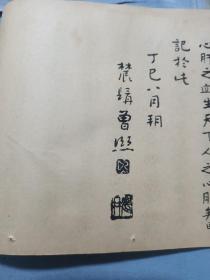 心肝之血生天下人之心肝其
記於此
丁巳八月朔
農髯曾熙